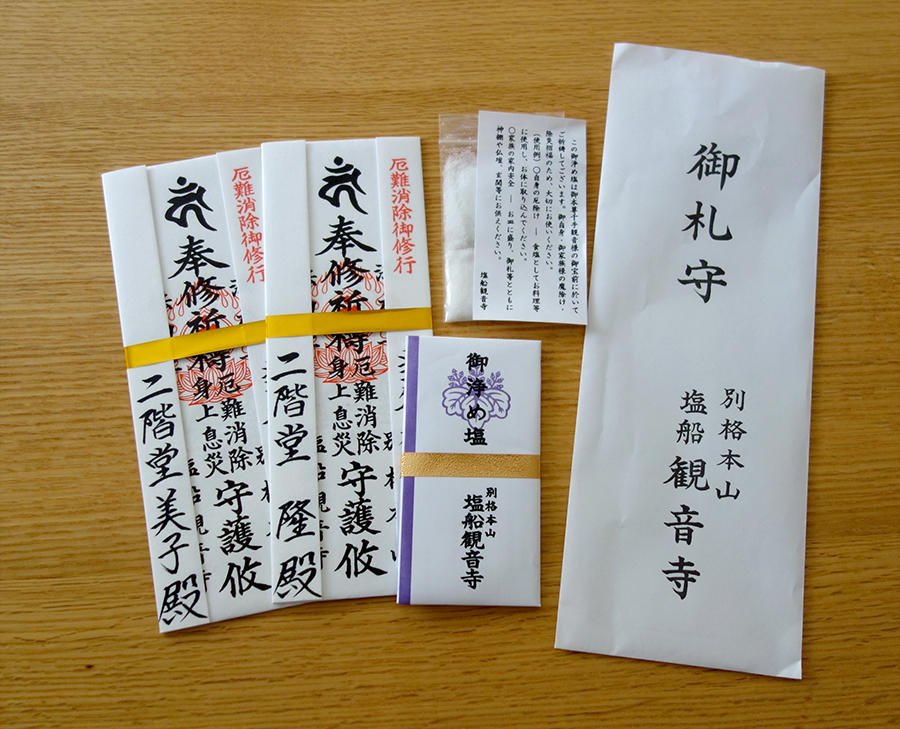 厄難消除御修行
奉修祈祷
厄難消除
身上息災
守護攸
二階堂美子殿
厄難消除御修行
奉修祈祷
厄難消除
身上息災
守護攸
二階堂 隆殿
この御浄め塩は御本尊千手観音様の御宝前に於いて
ご祈祷してございます。御自身・御家族様の魔除け・
除災招福のため、大切にお使いください。
(使用例)○自身の厄除け ― 食塩としてお料理等
に使用し、お体に取り込んでください。
○家族の家内安全 ― お皿に盛り、御札等とともに
神棚や仏壇、玄関等にお供えください。
塩船観音寺
御浄め塩
別格本山
塩船観音寺
御札守
別格本山
塩船観音寺